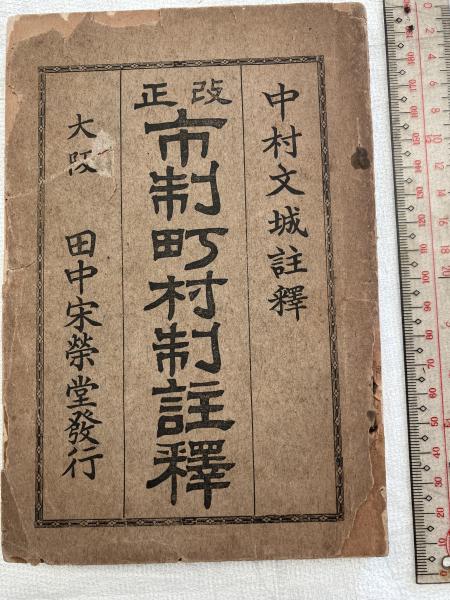 中村文城註釋
改正
市制町村制註釋
大阪 田中宋榮堂發行